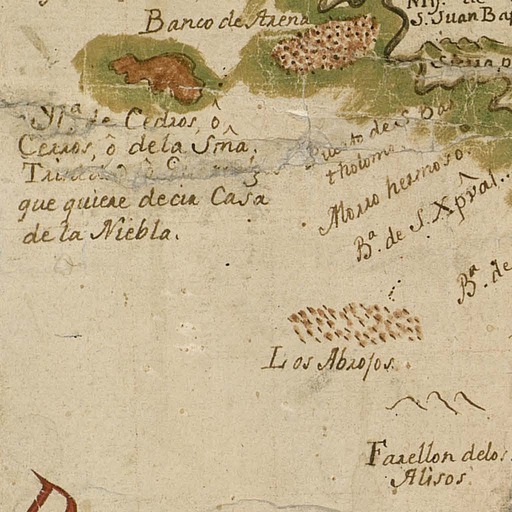 Banco de Arena
S. Juan Bap
Ysª de Cedros, ô
Cerros, ô de la Smã,
que quiere decir Casa
de la Niebla.
Puerto de S. Bar
tholome
Morro hermoso
Bª. de S. Xpval.
Bª. de
Los Abrojos.
Farellon de los
Alisos.